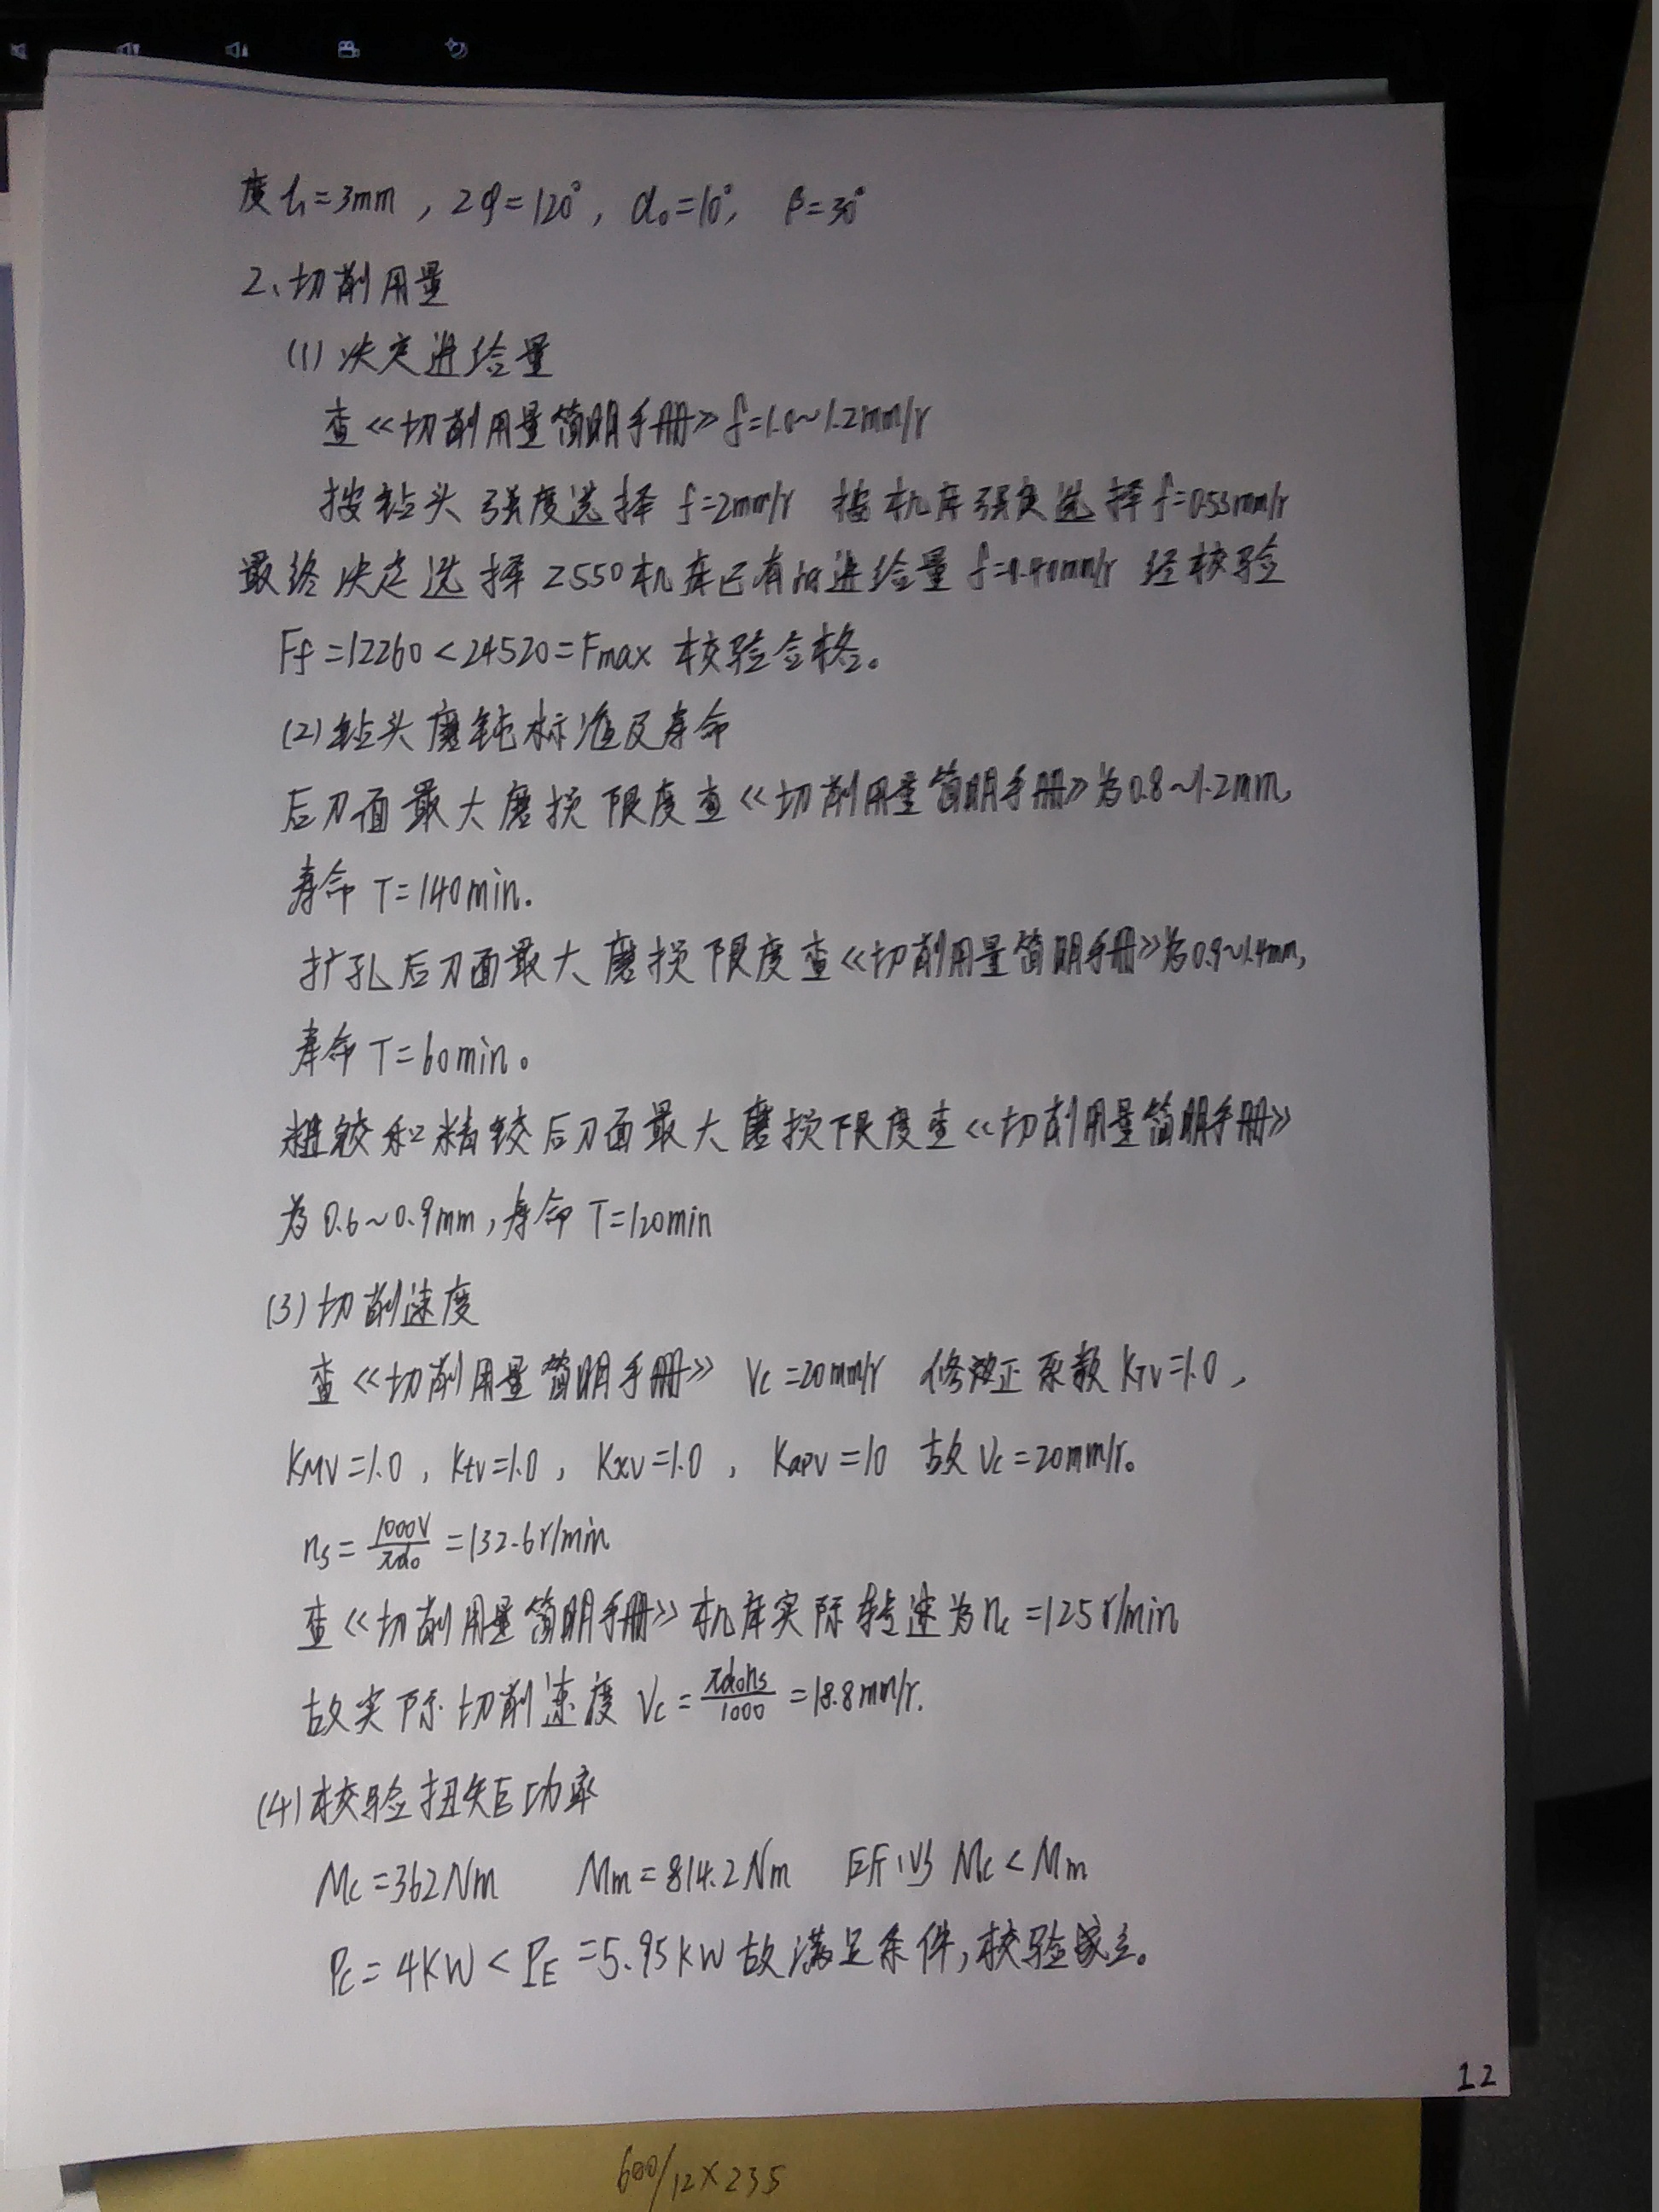 度 l₁=3mm，2φ=120°，α₀=10°， β=30°
2、切削用量
(1) 决定进给量
查《切削用量简明手册》f=1.0~1.2mm/r
按钻头强度选择 f=2mm/r 按机床强度选择 f=0.53mm/r
最终决定选择Z550机床已有的进给量 f=0.40mm/r 经校验
Ff=12260<24520=Fmax 校验合格。
(2) 钻头磨钝标准及寿命
后刀面最大磨损限度查《切削用量简明手册》为0.8~1.2mm，
寿命 T=140min.
扩孔后刀面最大磨损限度查《切削用量简明手册》为0.9~1.4mm，
寿命T=60min。
粗铰和精铰后刀面最大磨损限度查《切削用量简明手册》
为0.6~0.9mm，寿命 T=120min
(3) 切削速度
查《切削用量简明手册》 Vc=20mm/r 修正系数 KTV=1.0，
KMV=1.0，Ktv=1.0，Kxv=1.0，Kapv=10 故 Vc=20mm/r。
ns=1000V/πd₀=132.6r/min
查《切削用量简明手册》机床实际转速为nc=125r/min
故实际切削速度 Vc=πd₀ns/1000=18.8mm/r.
(4) 校验扭矩功率
Mc=362Nm Mm=814.2Nm 所以 Mc<Mm
Pc=4KW<PE=5.95KW 故满足条件，校验成立。
12
600/12×235